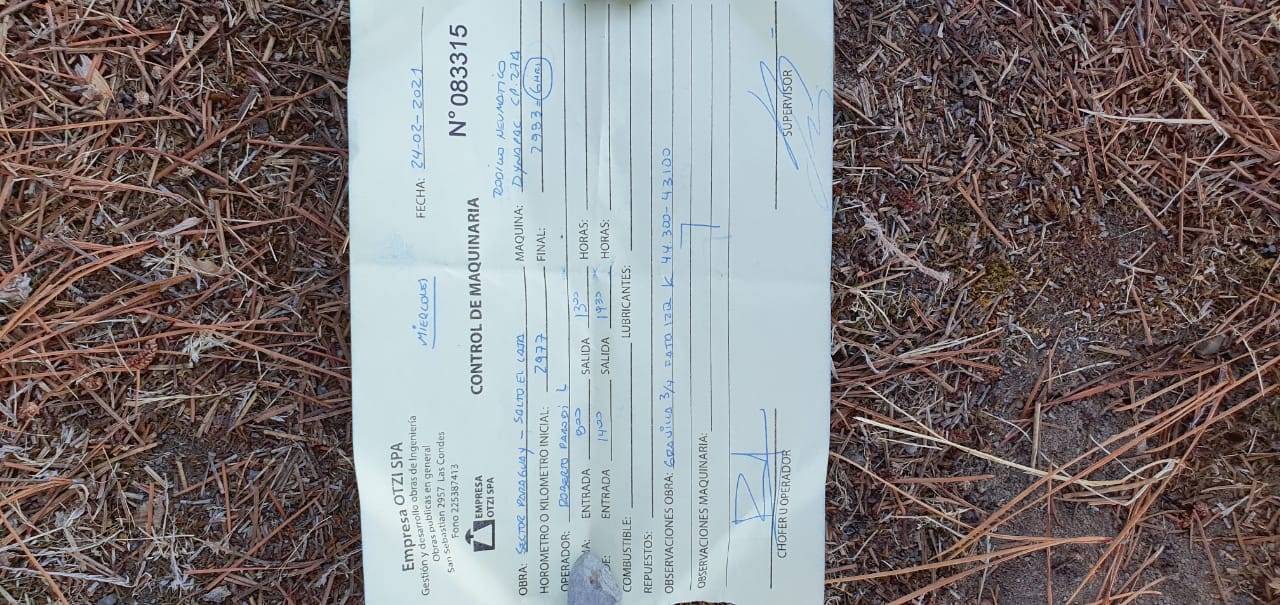 Empresa OTZI SPA
Gestión y desarrollo obras de Ingeniería
Obras publicas en general
San Sebastian 2957, Las Condes
Fono 225387413
MIERCOLES
FECHA: 24-02-2021
EMPRESA
OTZI SPA
CONTROL DE MAQUINARIA
N° 083315
RODILLO NEUMATICO
OBRA: SECTOR PARAGUAY - SALTO EL LAJA MAQUINA: DYNAPAC CP.274
HOROMETRO O KILOMETRO INICIAL: 2977 FINAL: 2983 = 6 HRS
OPERADOR: ROBERTO PARODI L
ENTRADA 800 SALIDA 1300 HORAS:
ENTRADA 1400 SALIDA 1930 HORAS:
COMBUSTIBLE: LUBRICANTES:
REPUESTOS:
OBSERVACIONES OBRA: GRAVILLA 3/4 K 44.300-43100
OBSERVACIONES MAQUINARIA:
CHOFER U OPERADOR
SUPERVISOR